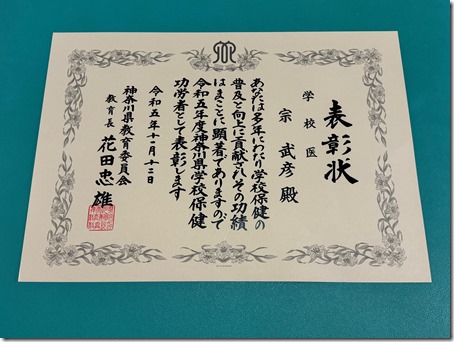 表彰状
学校医
宗 武彦 殿
あなたは多年にわたり学校保健の
普及と向上に貢献されその功績
はまことに顕著でありますので
令和五年度神奈川県学校保健
功労者として表彰します
令和五年十一月十二日
神奈川県教育委員会
教育長 花田忠雄